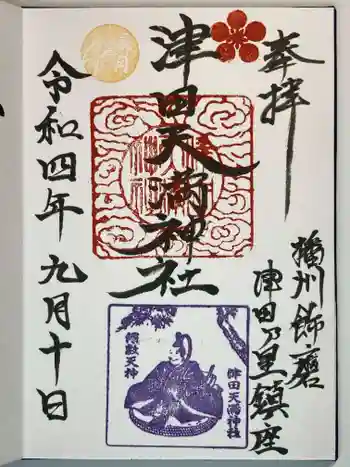 奉拝
播州飾磨
津田乃里鎮座
津田天満神社
令和四年九月十日
綱敷天神
津田天満神社